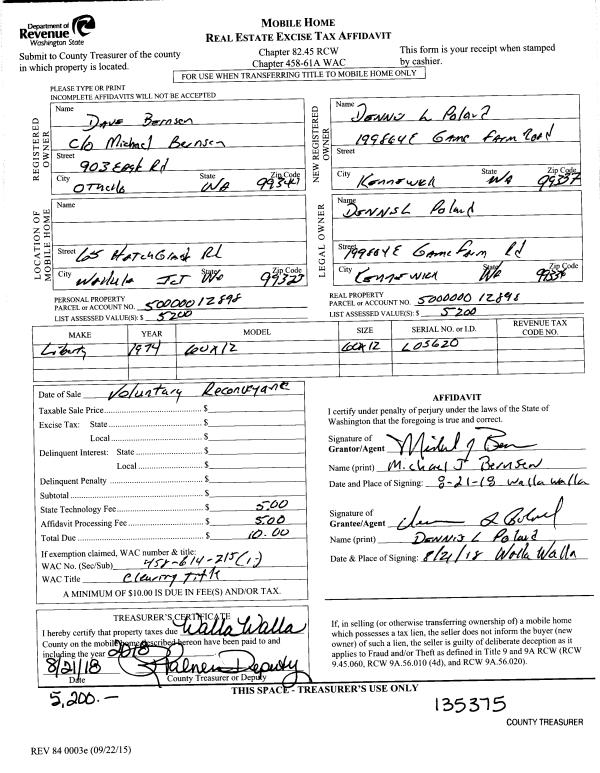 Department of
Revenue
Washington State
MOBILE HOME
REAL ESTATE EXCISE TAX AFFIDAVIT
Submit to County Treasurer of the county
in which property is located.
Chapter 82.45 RCW
Chapter 458-61A WAC
This form is your receipt when stamped
by cashier.
FOR USE WHEN TRANSFERRING TITLE TO MOBILE HOME ONLY
PLEASE TYPE OR PRINT
INCOMPLETE AFFIDAVITS WILL NOT BE ACCEPTED
REGISTERED OWNER
Name
Dave Bernsen
c/o Michael Bernsen
Street
903 East Rd
City State Zip Code
Othello WA
NEW REGISTERED OWNER
Name
Dennis L Poland
199864 E Game Farm Road
Street
City State Zip Code
Kennewick WA 99337
LOCATION OF MOBILE HOME
Name
Street
65 Rd
City State Zip Code
Wallula Jct Wa
LEGAL OWNER
Name
Dennis L Poland
Street
199864 E Game Farm Rd
City State Zip Code
Kennewick Wa
PERSONAL PROPERTY
PARCEL or ACCOUNT NO. 500000012898
LIST ASSESSED VALUE(S): $ 5200
REAL PROPERTY
PARCEL or ACCOUNT NO. 5000000 12898
LIST ASSESSED VALUE(S): $ 5200
MAKE YEAR MODEL SIZE SERIAL NO. or I.D. REVENUE TAX CODE NO.
Liberty 1974 60x12 60x12 L05620
Date of Sale Voluntary Reconveyance
Taxable Sale Price $
Excise Tax: State $
Local $
Delinquent Interest: State $
Local $
Delinquent Penalty $
Subtotal $
State Technology Fee $ 5.00
Affidavit Processing Fee $ 5.00
Total Due $ 10.00
If exemption claimed, WAC number & title:
WAC No. (Sec/Sub) 458-61A-215(1)
WAC Title Clearing title
A MINIMUM OF $10.00 IS DUE IN FEE(S) AND/OR TAX.
AFFIDAVIT
I certify under penalty of perjury under the laws of the State of
Washington that the foregoing is true and correct.
Signature of
Grantor/Agent
Name (print) Michael J Bernsen
Date and Place of Signing: 8-21-18 Walla Walla
Signature of
Grantee/Agent
Name (print) Dennis L Poland
Date & Place of Signing: 8/21/18 Walla Walla
TREASURER'S CERTIFICATE
I hereby certify that property taxes due Walla Walla
County on the mobile home described hereon have been paid to and
including the year 2018
8/21/18 Deputy
Date County Treasurer or Deputy
If, in selling (or otherwise transferring ownership of) a mobile home
which possesses a tax lien, the seller does not inform the buyer (new
owner) of such a lien, the seller is guilty of deliberate deception as it
applies to Fraud and/or Theft as defined in Title 9 and 9A RCW (RCW
9.45.060, RCW 9A.56.010 (4d), and RCW 9A.56.020).
THIS SPACE - TREASURER'S USE ONLY
5,200.-
135375
COUNTY TREASURER
REV 84 0003e (09/22/15)